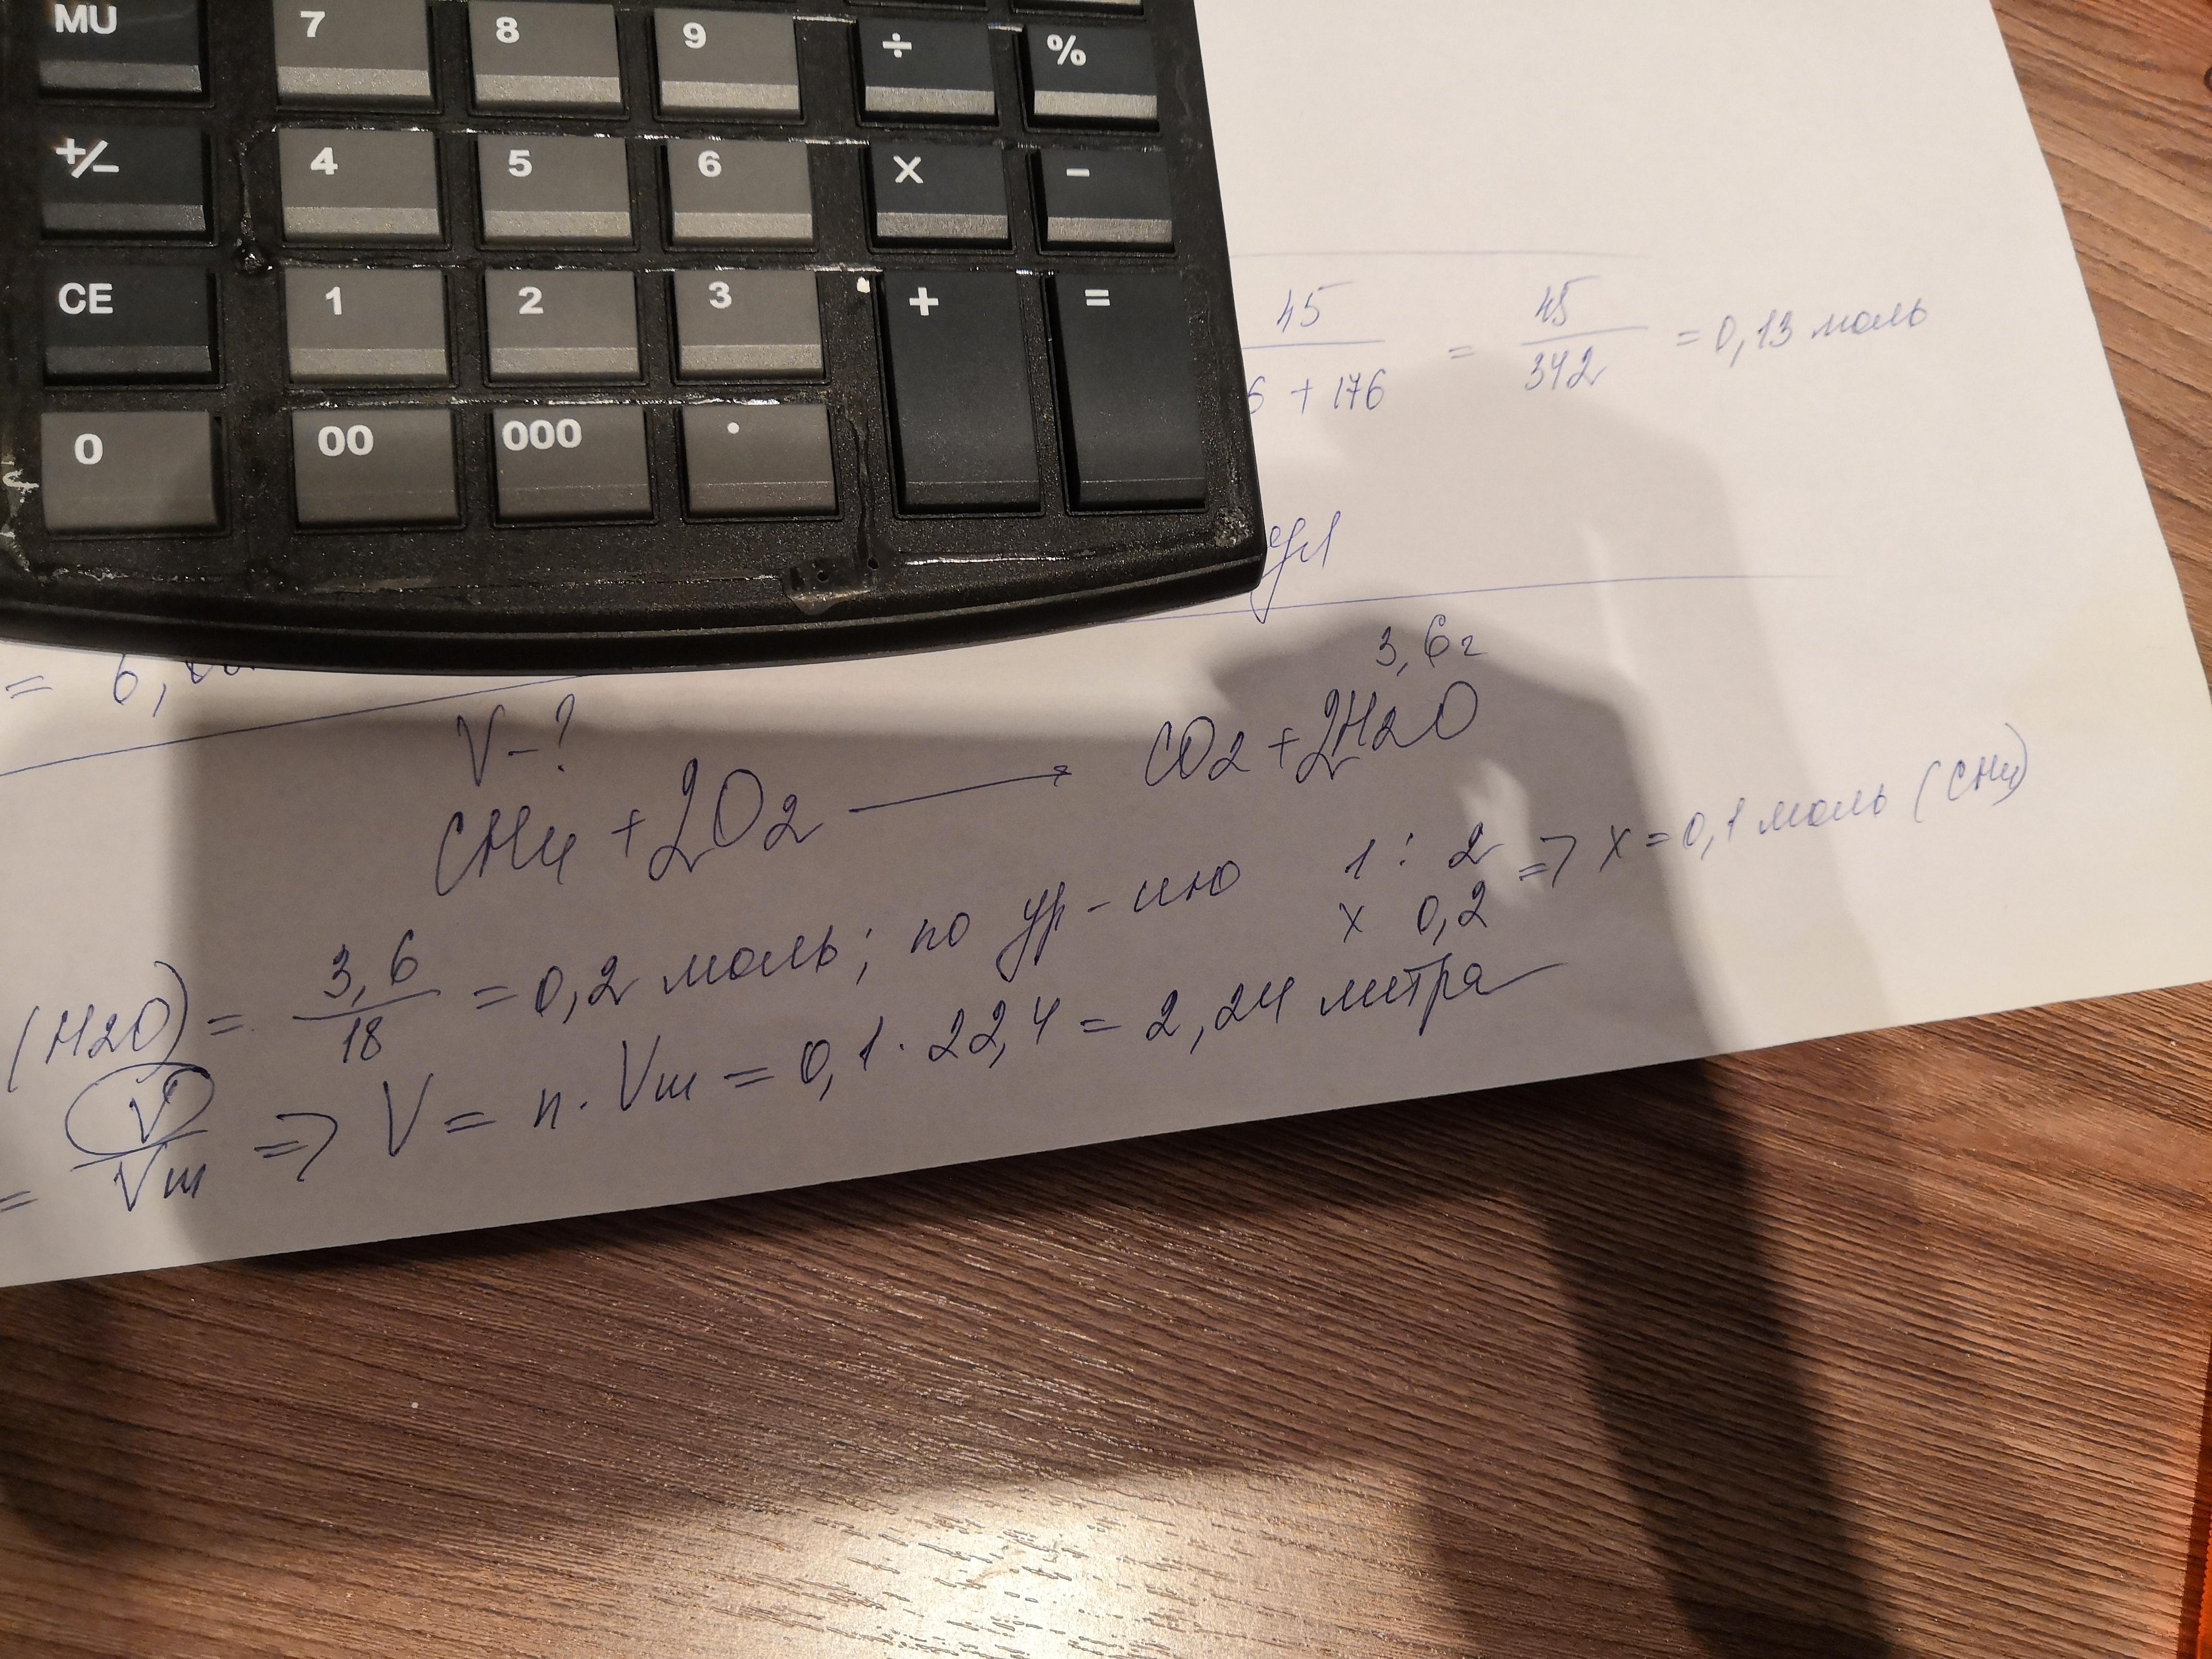 MU 7 8 9 ÷ %
+/− 4 5 6 X -
CE 1 2 3 + =
0 00 000 .
45 / 6 + 176 = 45 / 342 = 0,13 моль
= 6,
3,6г
V-?
CH4 + 2O2 → CO2 + 2H2O
(H2O) = 3,6 / 18 = 0,2 моль; по ур-ию 1 : 2
x 0,2 => x = 0,1 моль (CH4)
= V / Vm => V = n · Vm = 0,1 · 22,4 = 2,24 литра